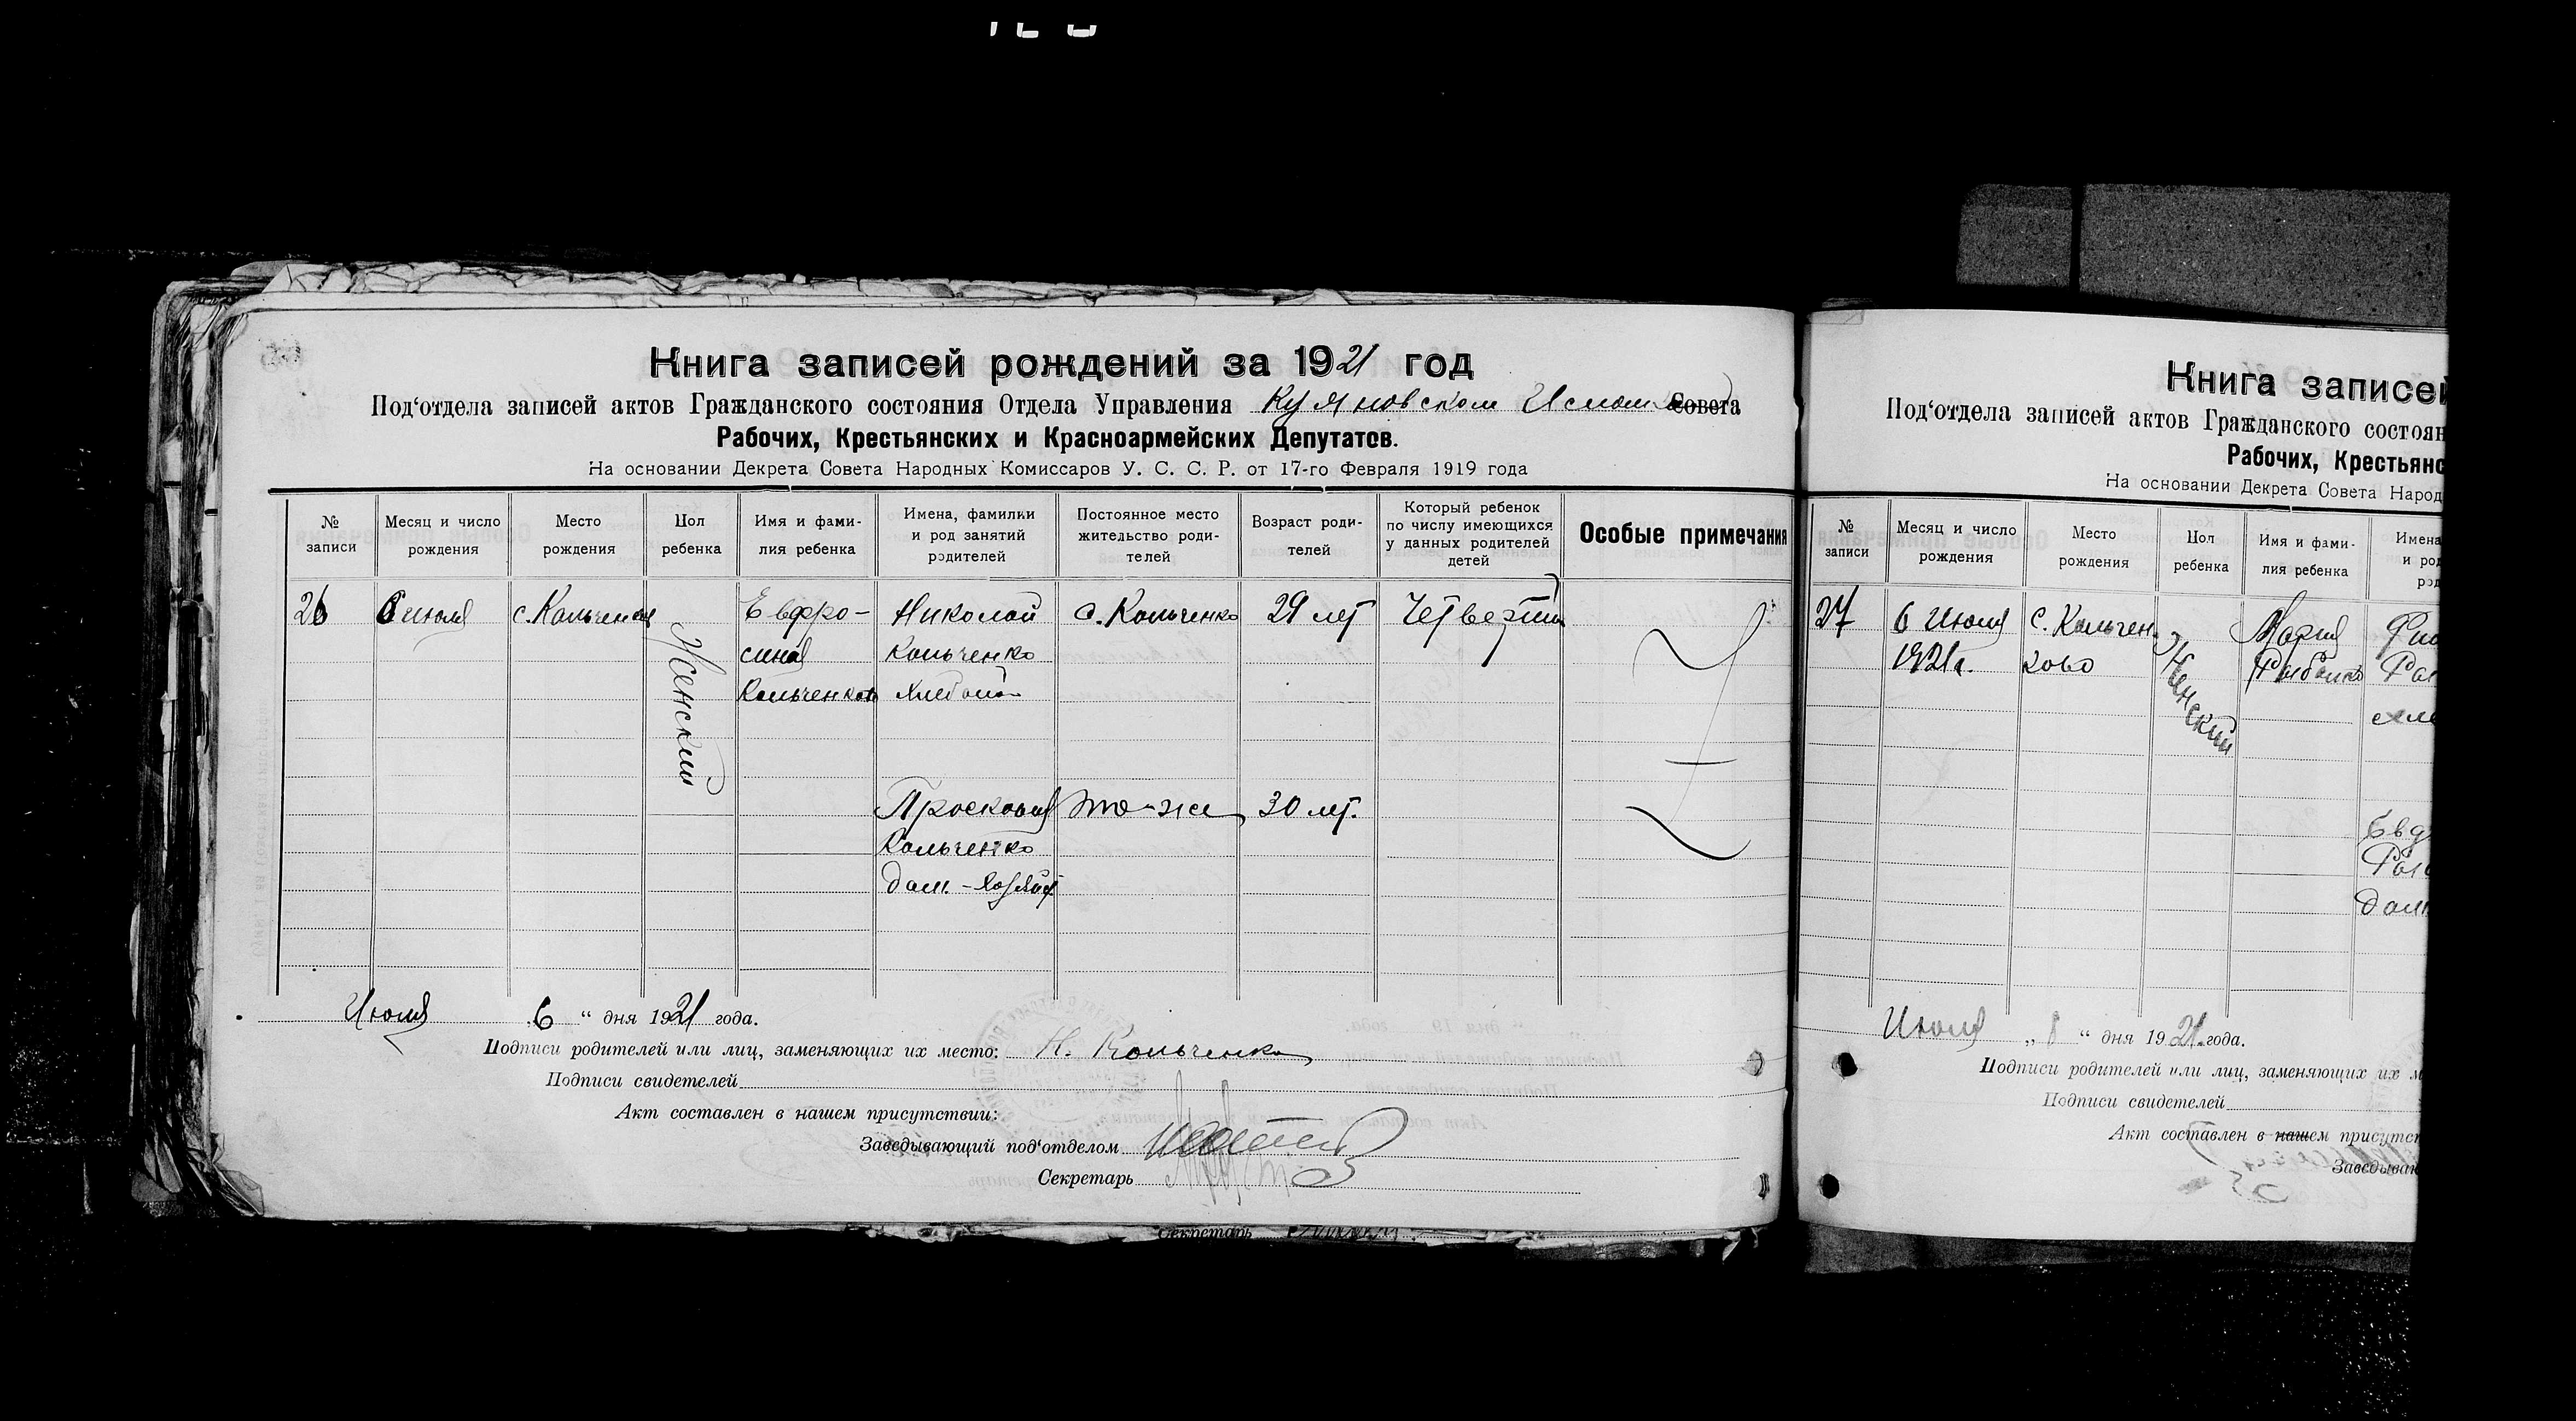 Книга записей рождений за 1921 год
Под‘отдела записей актов Гражданского состояния Отдела Управления Совета
Рабочих, Крестьянских и Красноармейских Депутатов.
На основании Декрета Совета Народных Комиссаров У. С. С. Р. от 17-го Февраля 1919 года
№ записи
Месяц и число рождения
Место рождения
Пол ребенка
Имя и фами-
лия ребенка
Имена, фамилии
и род занятий
родителей
Постоянное место
жительство роди-
телей
Возраст роди-
телей
Который ребенок
по числу имеющихся
у данных родителей
детей
Особые примечания
26
6 июля
с. Кольченко
Женский
Евфро-
сина
Кольченко
Николай
Кольченко
с. Кольченко
29 лет
Четвертый
Просковия
Кольченко
дом.-хозяйка
то-же
30 лет.
Июля 6 “ дня 1921 года.
Подписи родителей или лиц, заменяющих их место: Н. Кольченко
Подписи свидетелей
Акт составлен в нашем присутствии:
Заведывающий под‘отделом
Секретарь
Секретарь
Книга записей
Под‘отдела записей актов Гражданского состоян
Рабочих, Крестьянс
На основании Декрета Совета Народ
№ записи
Месяц и число рождения
Место рождения
Пол ребенка
Имя и фами-
лия ребенка
Имена
и род
род
27
6 Июля
1921г.
с. Кольчен-
ково
Женский
Мария
Евд
дом
Июля „ 8 “ дня 1921 года.
Подписи родителей или лиц, заменяющих их м
Подписи свидетелей
Акт составлен в нашем присутст
Заведываю